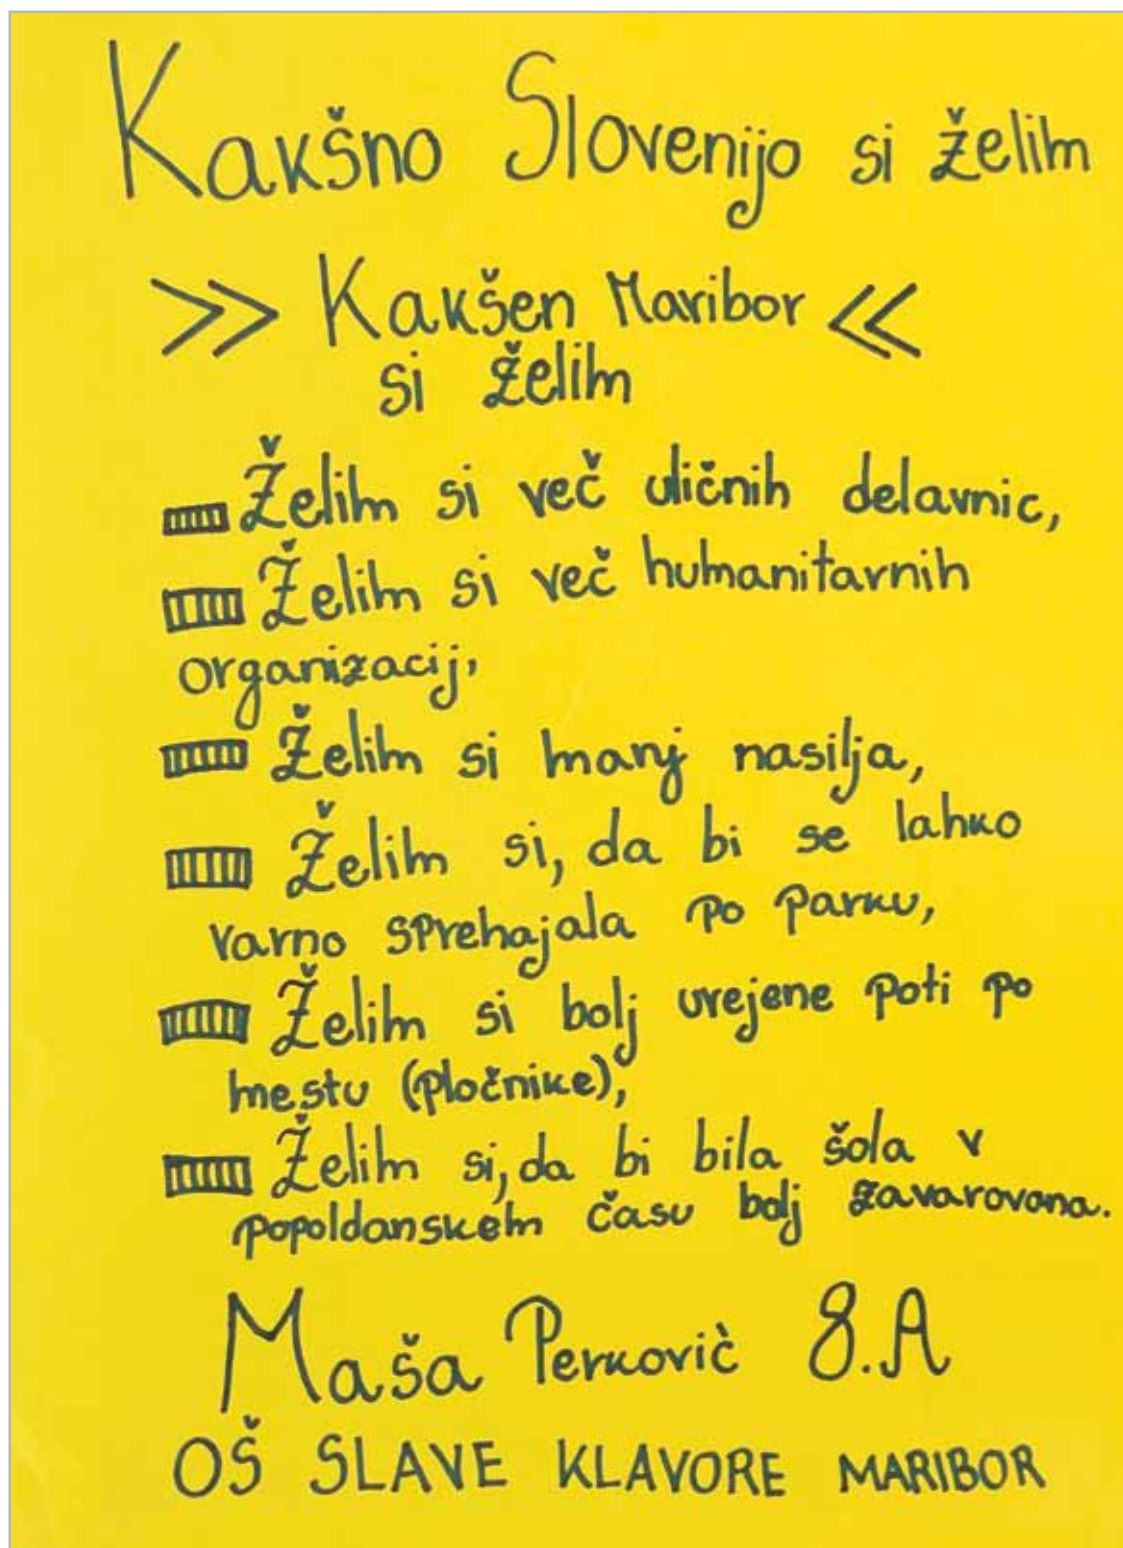 Kakšno Slovenijo si želim
>> Kakšen Maribor <<
si želim
Želim si več uličnih delavnic,
Želim si več humanitarnih
organizacij,
Želim si manj nasilja,
Želim si, da bi se lahko
varno sprehajala po parku,
Želim si bolj urejene poti po
mestu (pločnike),
Želim si, da bi bila šola v
popoldanskem času bolj zavarovana.
Maša Perkovič 8.A
OŠ SLAVE KLAVORE MARIBOR